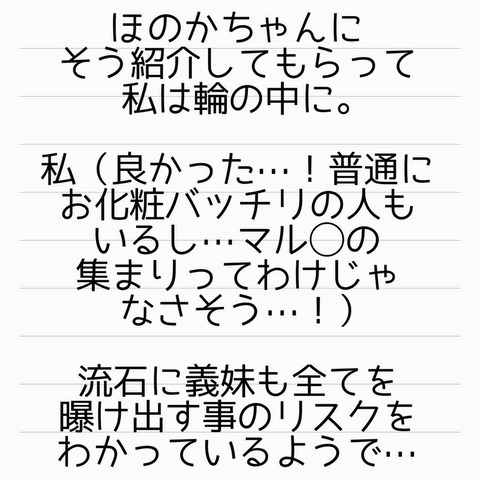 ほのかちゃんに
そう紹介してもらって
私は輪の中に。
私（良かった…！普通に
お化粧バッチリの人も
いるし…マル◯の
集まりってわけじゃ
なさそう…！）
流石に義妹も全てを
曝け出す事のリスクを
わかっているようで…